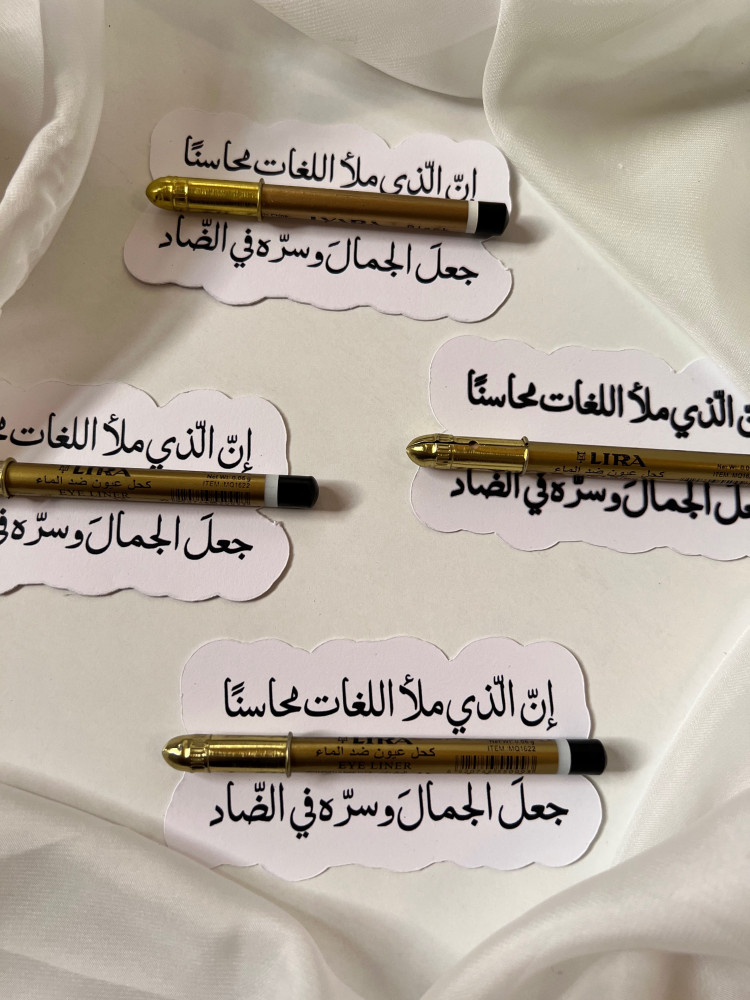 إنّ الّذي ملأ اللغات محاسنًا
جعلَ الجمالَ وسرّه في الضّاد
إنّ الّذي ملأ اللغات
LIRA
كحل عيون ضد الماء
EYE LINER
Net Wt: 0.06 g
ITEM: MQ1622
جعلَ الجمالَ وسرّه في
الّذي ملأ اللغات محاسنًا
LIRA
كحل عيون ضد الماء
الجمالَ وسرّه في الضّاد
إنّ الّذي ملأ اللغات محاسنًا
LIRA
كحل عيون ضد الماء
EYE LINER
ITEM: MQ1622
جعلَ الجمالَ وسرّه في الضّاد